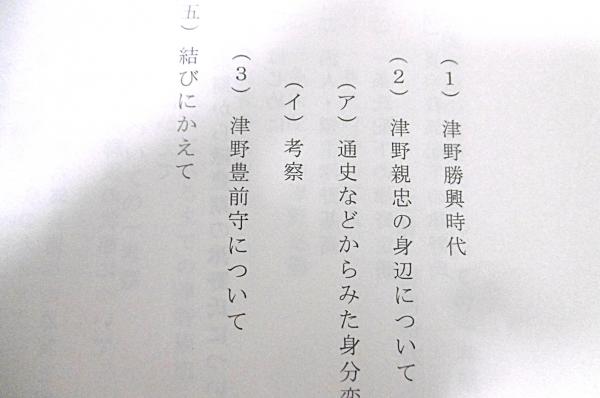 （１）津野勝興時代
（２）津野親忠の身辺について
（ア）通史などからみた身分変
（イ）考察
（３）津野豊前守について
五）結びにかえて